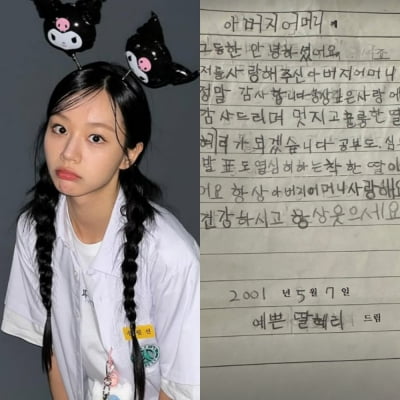 아버지어머니.
그동한 안녕하셨어요.
저를사랑해주신아버지어머니
정말 감사합니다항상깊은사랑에
감사드리며 멋지고훌륭한 딸
혜리가되겠습니다 공부도,
발표도열심히하는착한 딸이
항상아버지어머니사랑해요
건강하시고 항상웃으세요
2001 년 5 월 7 일
예쁜 딸혜리 드림